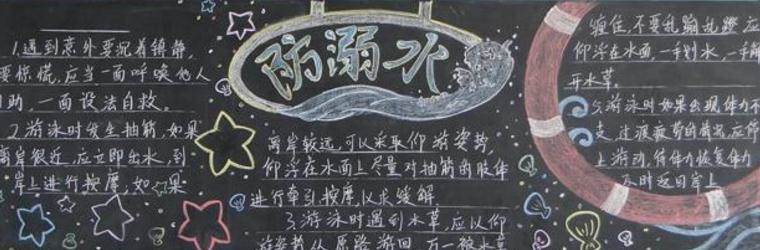 防溺水
1.遇到意外要沉着镇静,
要惊慌,应当一面呼唤他人
助,一面设法自救。
2.游泳时发生抽筋,如果
离岸很近,应立即出水,到
岸上进行按摩,如果
离岸较远,可以采取仰游姿势,
仰浮在水面上尽量对抽筋的肢体
进行牵引按摩,以求缓解。
3.游泳时遇到水草,应以仰
游姿势从原路游回,万一被水草
缠住,不要乱蹦乱蹬,应
仰浮在水面,一手划水,一手解
开水草。
游泳时如果出现体力不
支、过度疲劳的情况,应停
上游动,待体力恢复
及时返回岸上